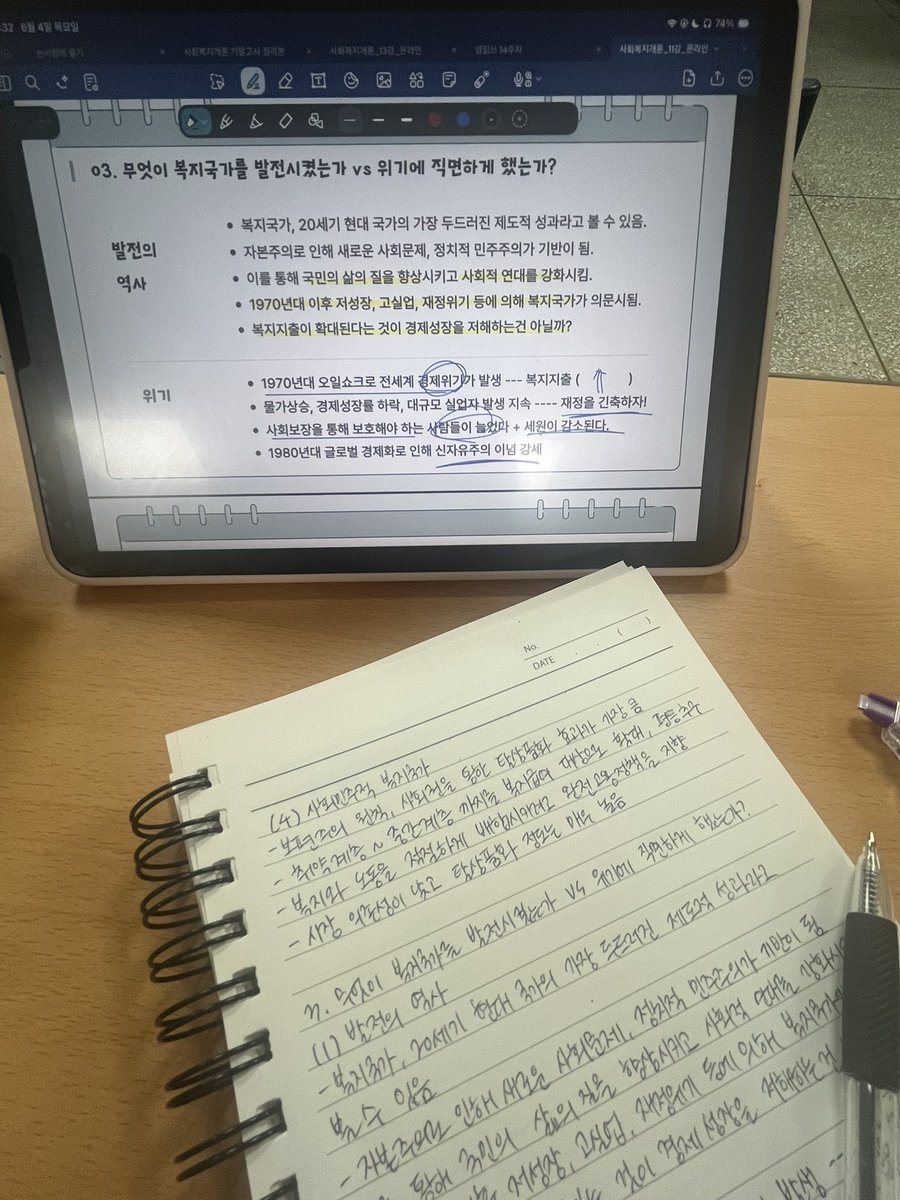 :32 6월 4일 목요일
74%
사회복지개론 기말고사 정리본
사회복지개론_13강_온라인
사회복지개론_11강_온라인
03. 무엇이 복지국가를 발전시켰는가 vs 위기에 직면하게 했는가?
발전의
역사
• 복지국가, 20세기 현대 국가의 가장 두드러진 제도적 성과라고 볼 수 있음.
• 자본주의로 인해 새로운 사회문제, 정치적 민주주의가 기반이 됨.
• 이를 통해 국민의 삶의 질을 향상시키고 사회적 연대를 강화시킴.
• 1970년대 이후 저성장, 고실업, 재정위기 등에 의해 복지국가가 의문시됨.
• 복지지출이 확대된다는 것이 경제성장을 저해하는건 아닐까?
위기
• 1970년대 오일쇼크로 전세계 경제위기가 발생 --- 복지지출 ( ↑ )
• 물가상승, 경제성장률 하락, 대규모 실업자 발생 지속 ---- 재정을 긴축하자!
• 사회보장을 통해 보호해야 하는 사람들이 늘었다 + 세원이 감소된다.
• 1980년대 글로벌 경제화로 인해 신자유주의 이념 강세
No.
DATE . . ( )
(4) 사회민주적 복지국가
- 보편주의 원칙, 사회권을 통한 탈상품화 효과가 가장 큼
- 취약계층 ~ 중간계층 까지를 복지급여 대상으로 확대, 평등추구
- 복지와 노동을 적절하게 배합시키려고 완전고용정책을 지향
- 시장 의존성이 낮고 탈상품화 정도는 매우 높음
무엇이 복지국가를 발전시켰는가 vs 위기에 직면하게 했는가?
(1) 발전의 역사
- 복지국가, 20세기 현대 국가의 가장 두드러진 제도적 성과라고
볼 수 있음
- 자본주의로 인해 새로운 사회문제, 정치적 민주주의가 기반이 됨
통해 국민의 삶의 질을 향상시키고 사회적 연대를 강화시
저성장, 고실업, 재정위기 등에 의해 복지국가
것이 경제성장을 저해하는 건
발생 --